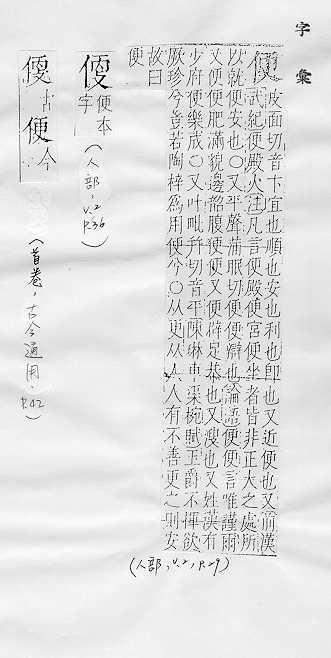 字彙
便 皮面切音卞宜也順也安也利也即也又近便也又前漢
武紀便殿火注凡言便殿便宮便坐者皆非正大之處所
以就便安也〇又平聲蒲眠切便便辯也論語便便言唯謹爾
又便便肥滿貌邊韶腹便便又便辟足恭也又溲也又姓漢有
少府便樂成〇又叶毗幷切音平陳琳車渠椀賦玉爵不揮欲
厥珍兮豈若陶梓為用便兮〇从更从人人有不善更之則安
故曰
便
(人部,v.2,p.29)
𠊳 便本字 (人部,v.2 P.36)
𠊳古 便今 (首卷,古今通用.P.42)